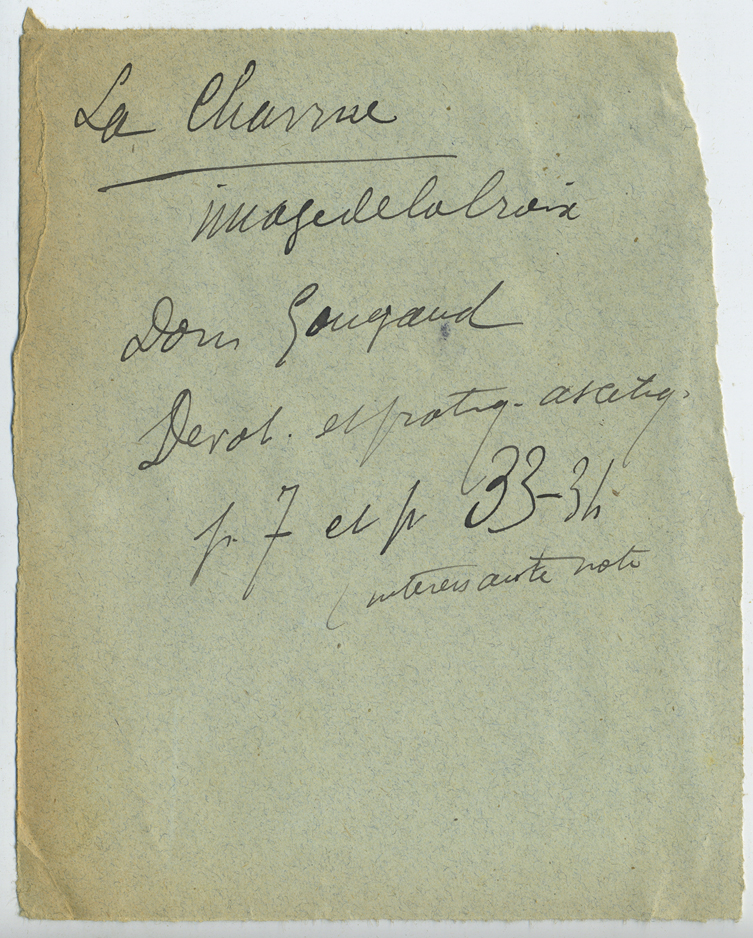 La Charrue
image de la Croix
Dom Gougaud
Devot. et pratiq. ascetiq.
p. 7 et p 33-34
(interessante note